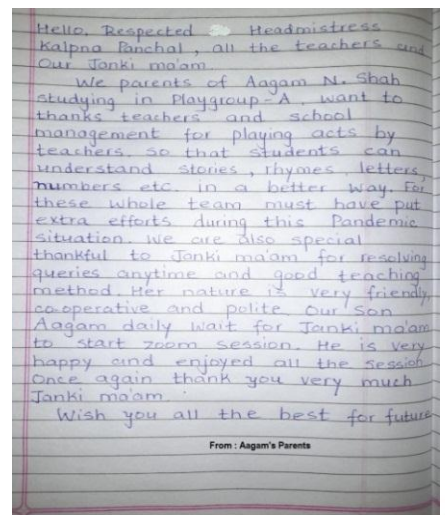 Hello, Respected Headmistress
Kalpna Panchal, all the teachers and
Our Janki ma'am.
We parents of Aagam N. Shah
studying in Playgroup-A, want to
thanks teachers and school
management for playing acts by
teachers. so that students can
understand stories, rhymes, letters,
numbers etc. in a better way. For
these whole team must have put
extra efforts during this Pandemic
situation. We are also special
thankful to Janki ma'am for resolving
queries anytime and good teaching
method. Her nature is very friendly,
co-operative and polite. Our son
Aagam daily wait for Janki ma'am
to start zoom session. He is very
happy and enjoyed all the session
Once again thank you very much
Janki ma'am.
Wish you all the best for future
From : Aagam's Parents